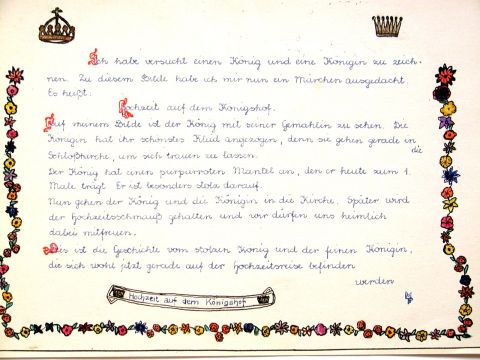 Ich habe versucht einen König und eine Königin zu zeich-
nen. Zu diesem Bilde habe ich mir nun ein Märchen ausgedacht.
Es heißt:
Hochzeit auf dem Königshof.
Auf meinem Bilde ist der König mit seiner Gemahlin zu sehen. Die
Königin hat ihr schönstes Kleid angezogen, denn sie gehen gerade in die
Schloßkirche, um sich trauen zu lassen.
Der König hat einen purpurroten Mantel an, den er heute zum 1.
Male trägt. Er ist besonders stolz darauf.
Nun gehen der König und die Königin in die Kirche. Später wird
der Hochzeitsschmauß gehalten und wir dürfen uns heimlich
dabei mitfreuen.
Dies ist die Geschichte vom stolzen König und der feinen Königin,
die sich wohl jetzt gerade auf der Hochzeitsreise befinden
werden
Hochzeit auf dem Königshof